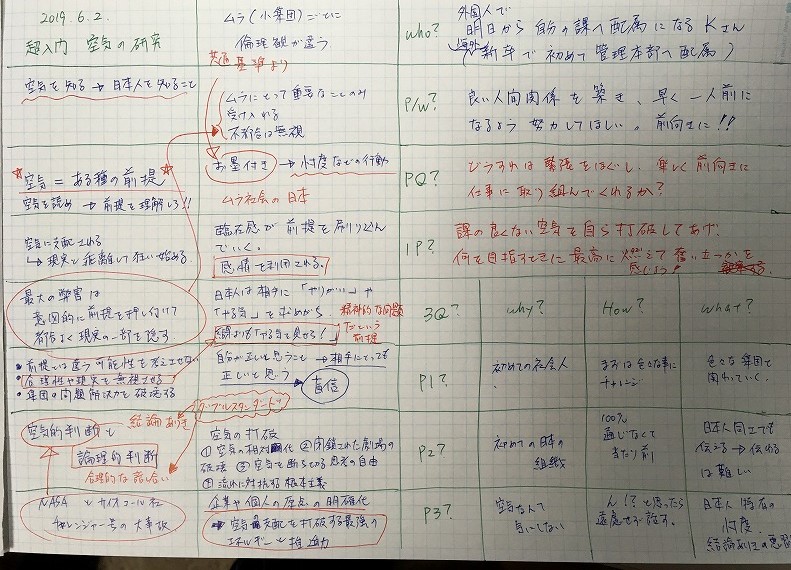 2019.6.2.
超入門 空気の研究
空気を知る → 日本人を知ること
空気 = ある種の前提
空気を読め → 前提を理解しろ!!
空気に支配される
↳ 現実と距離して狂い始める
最大の弊害は
意図的に前提を押し付けて
都合よく現実の一部を隠す
・前提とは違う可能性を考えさせない
・合理性や現実を無視させる
・集団の問題解決力を破壊する
空気的判断と 結論ありき
論理的判断
合理的な話し合い
NASA とサイオコール社
チャレンジャー号の大事故
ムラ(小集団)ごとに
倫理観が違う
共通基準より
ムラにとって重要なことのみ
受け入れる
不都合は無視
お墨付き → 忖度などの行動
ムラ社会の日本
臨在感が前提を刷り込ん
でいく。
感情を利用される。
日本人は相手に「やりがい」や
「やる気」を求めがち。 精神的な問題
だという
前提
「やる気を見せろ!」
自分が正しいと思うこと → 相手にとっても
正しいと思う
盲信
ダブルスタンダード
空気の打破
① 空気の相対化 ② 閉鎖された劇場の
破壊 ③ 空気を断ち切る思考の自由
④ 流れに対抗する根本主義
企業や個人の原点の明確化
→ 空気支配を打破する最強の
エネルギーと推進力
who?
外国人で
明日から自分の課へ配属になるKさん
(海外新卒で初めて管理本部へ配属)
P/w?
良い人間関係を築き、早く一人前に
なるよう努力してほしい。前向きに!!
PQ?
どうすれば緊張をほぐし、楽しく前向きに
仕事に取り組んでくれるか?
1P?
課の良くない空気を自ら打破してあげ、
何を目指すときに最高に燃えて奮い立つかを
感じよう!
3Q? why? How? What?
P1?
初めての社会人
まずは色々な事に
チャレンジ
色々な集団と
関わっていく。
P2?
初めての日本の
組織
100%
通じなくて
当たり前
日本人同士でも
伝える → 伝わる
は難しい
P3?
空気なんて
気にしない
ん!?と思ったら
遠慮せず話す。
日本人特有の
忖度
結論ありきの悪習